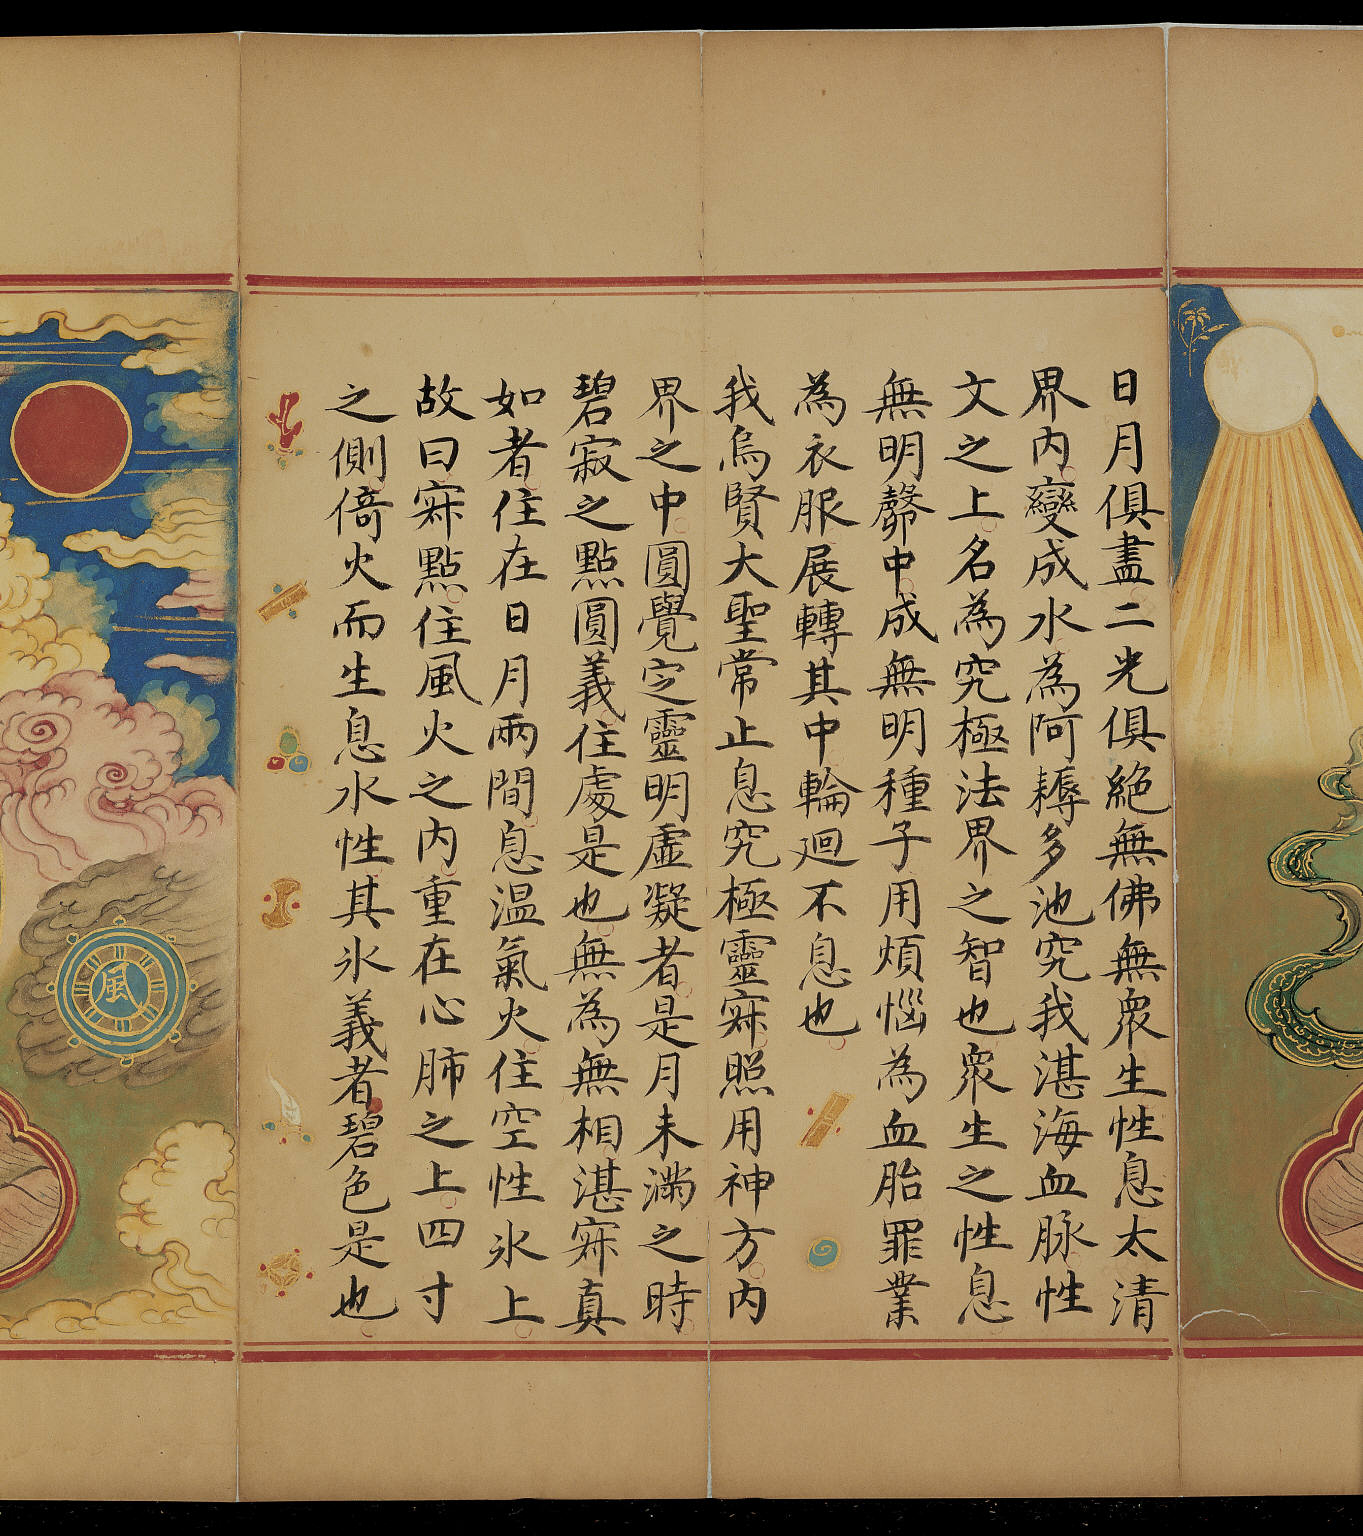 日月俱盡二光俱絕無佛無眾生性息太清
界內變成水為阿耨多池究我湛海血脉性
文之上名為究極法界之智也眾生之性息
無明中成無明種子用煩惱為血胎罪業
為衣服展轉其中輪廻不息也
我烏賢大聖常止息究極靈寂照用神方內
界之中圓覺定靈明虛凝者是月未滿之時
碧寂之點圓義住處是也無為無相湛寂真
如者住在日月兩間息温氣火住空性氷上
故曰寂點住風火之內重在心肺之上四寸
之側倚火而生息水性其氷義者碧色是也
風